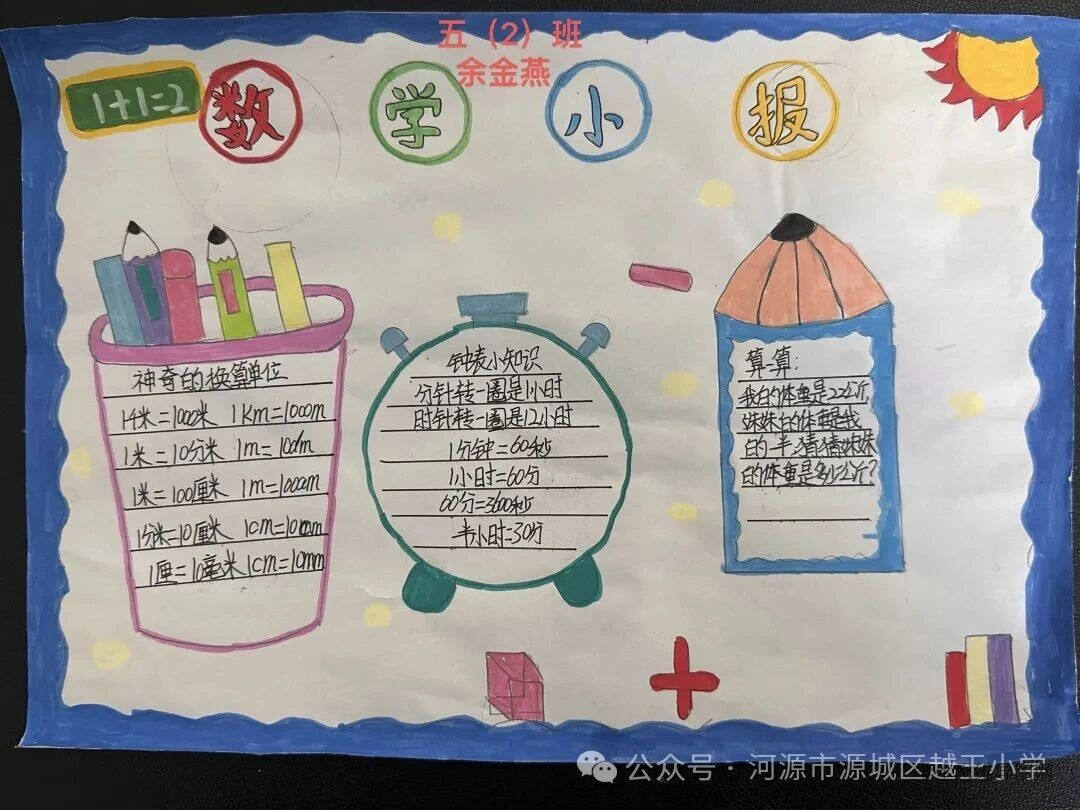 五（2）班
余金燕
1+1=2
数学小报
神奇的换算单位
1千米=1000米 1Km=1000m
1米=10分米 1m=10dm
1米=100厘米 1m=100cm
1分米=10厘米 1cm=10cm
1厘=10毫米 1cm=10mm
钟表小知识
分针转一圈是1小时
时针转一圈是12小时
1分钟=60秒
1小时=60分
60分=3600秒
半小时=30分
算一算:
我的体重是22公斤,
妹妹的体重是我
的一半,猜猜妹妹
的体重是多少公斤?
公众号·河源市源城区越王小学